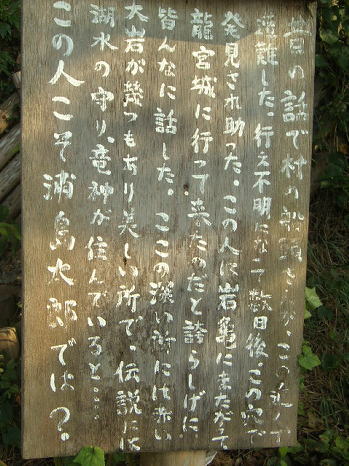 昔の話で村の船頭さんが、この近くで
遭難した。行え不明になって数日後、この穴で
発見され助った。この人は岩亀にまたがって
龍宮城に行って来たのだと誇らしげに
皆んなに話した。ここの深い所には赤い
大岩が幾つもあり美しい所で、伝説には
湖水の守り、竜神が住んでいると……
この人こそ浦島次郎では?。